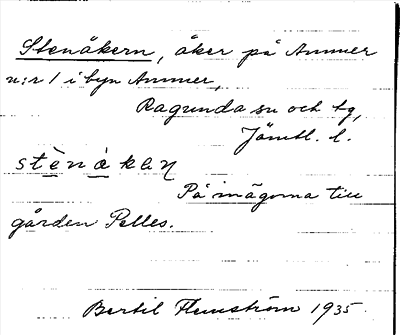 Stenåkern, åker på Ammer
n:r 1 i byn Ammer,
Ragunda sn och tg,
Jämtl. l.
På inägorna till
gården Pelles.
Bertil Flemström 1935